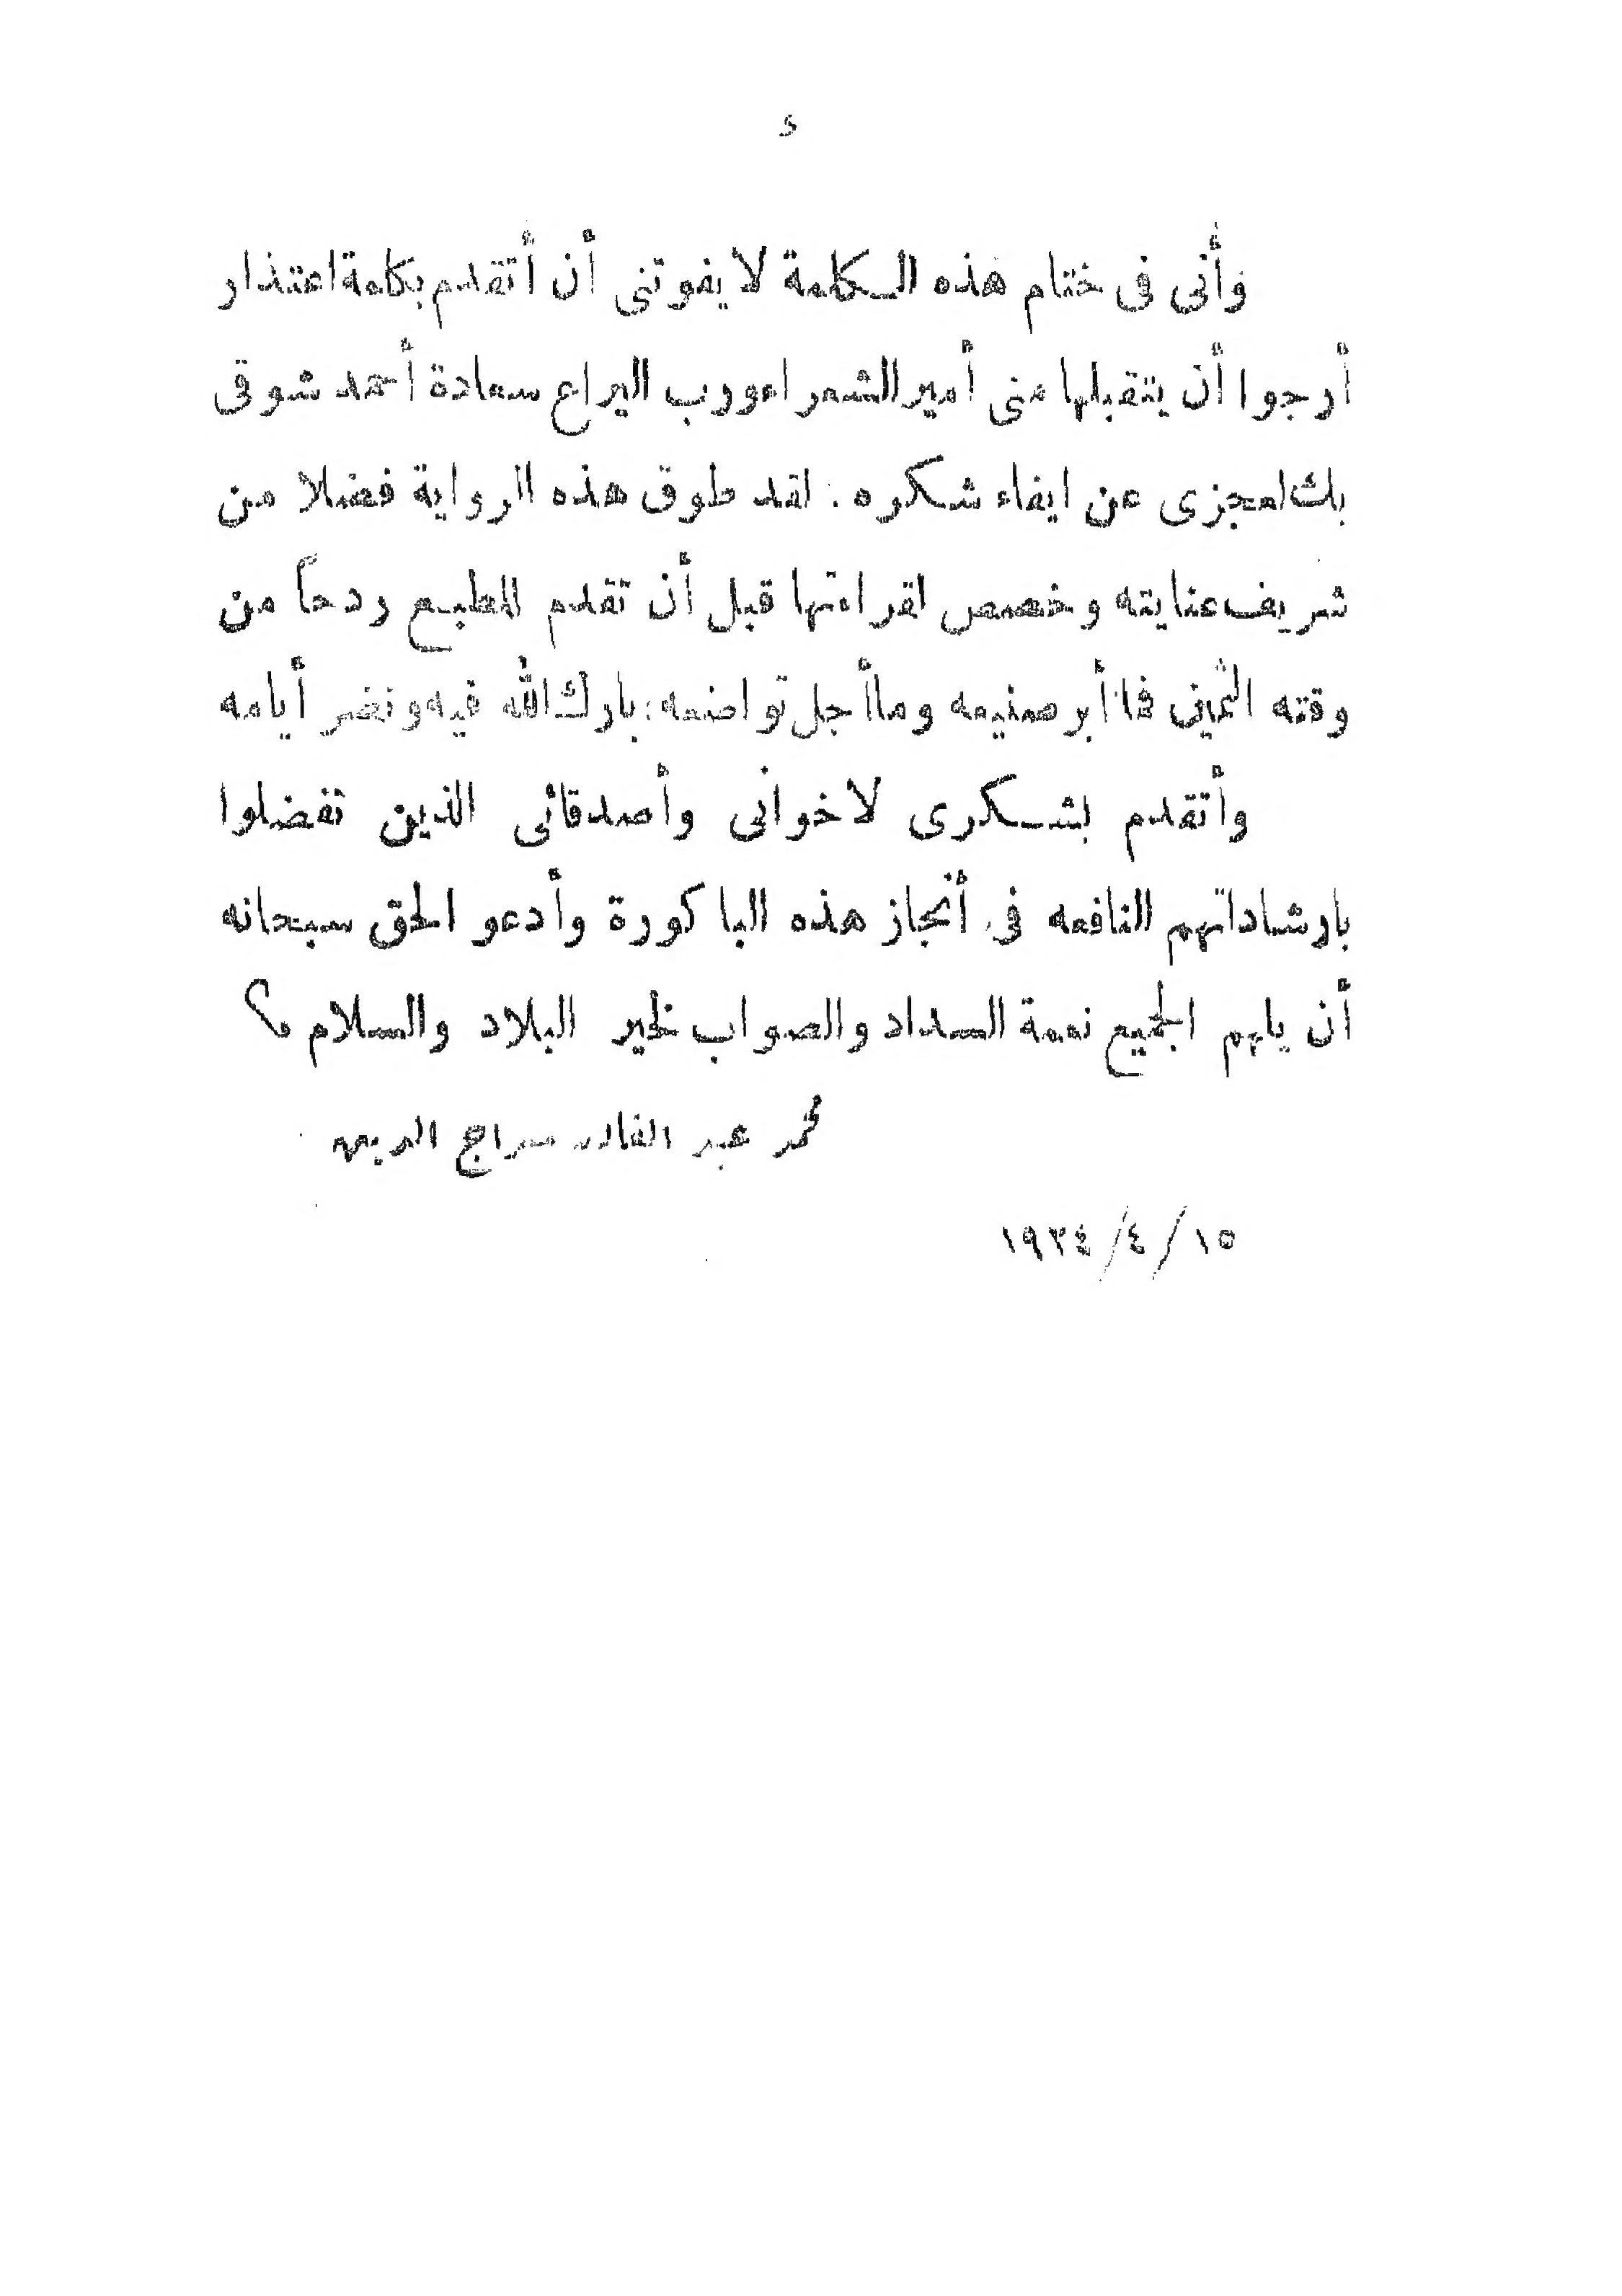 د
وأنى فى ختام هذه الكلمة لا يفوتنى أن أتقدم بكلمة اعتذار
أرجوا أن يتقبلها منى أمير الشعراء ورب اليراع سعادة أحمد شوقى
بك لعجزى عن ايفاء شكره . لقد طوق هذه الرواية فضلا من
شريف عنايته وخصص لقراءتها قبل أن تقدم للطبع ردحاً من
وقته الثمين فما أبر صنيعه وما أجل تواضعه : بارك الله فيه ونضر أيامه
وأتقدم بشكرى لاخوانى وأصدقائى الذين تفضلوا
بارشاداتهم النافعه فى أنجاز هذه الباكورة وأدعو الحق سبحانه
أن يلهم الجميع نعمة السداد والصواب لخير البلاد والسلام ؟
محمد عبد القادر سراج الدين
١٥ / ٤ / ١٩٢٤